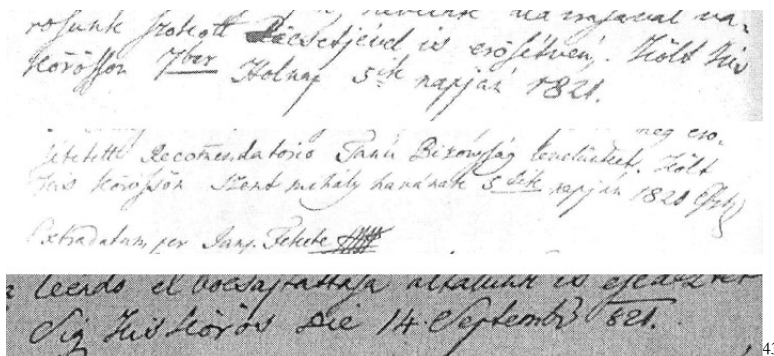 rosunk szokott Pecsetjével is erősítvén. Költ Kis
Körösson 7ber Holnap 5ik napján 1821.
meg erő-
sítetett Recomendatorio Tanú Bizonyság levelünket. Költ
Kis Körössön Szent mihály havának 5dik napján 1821
Extradatum per Fekete
leendő el bocsajtattása általunk is
Sig Kis Körös die 14. Septembr 821.
43